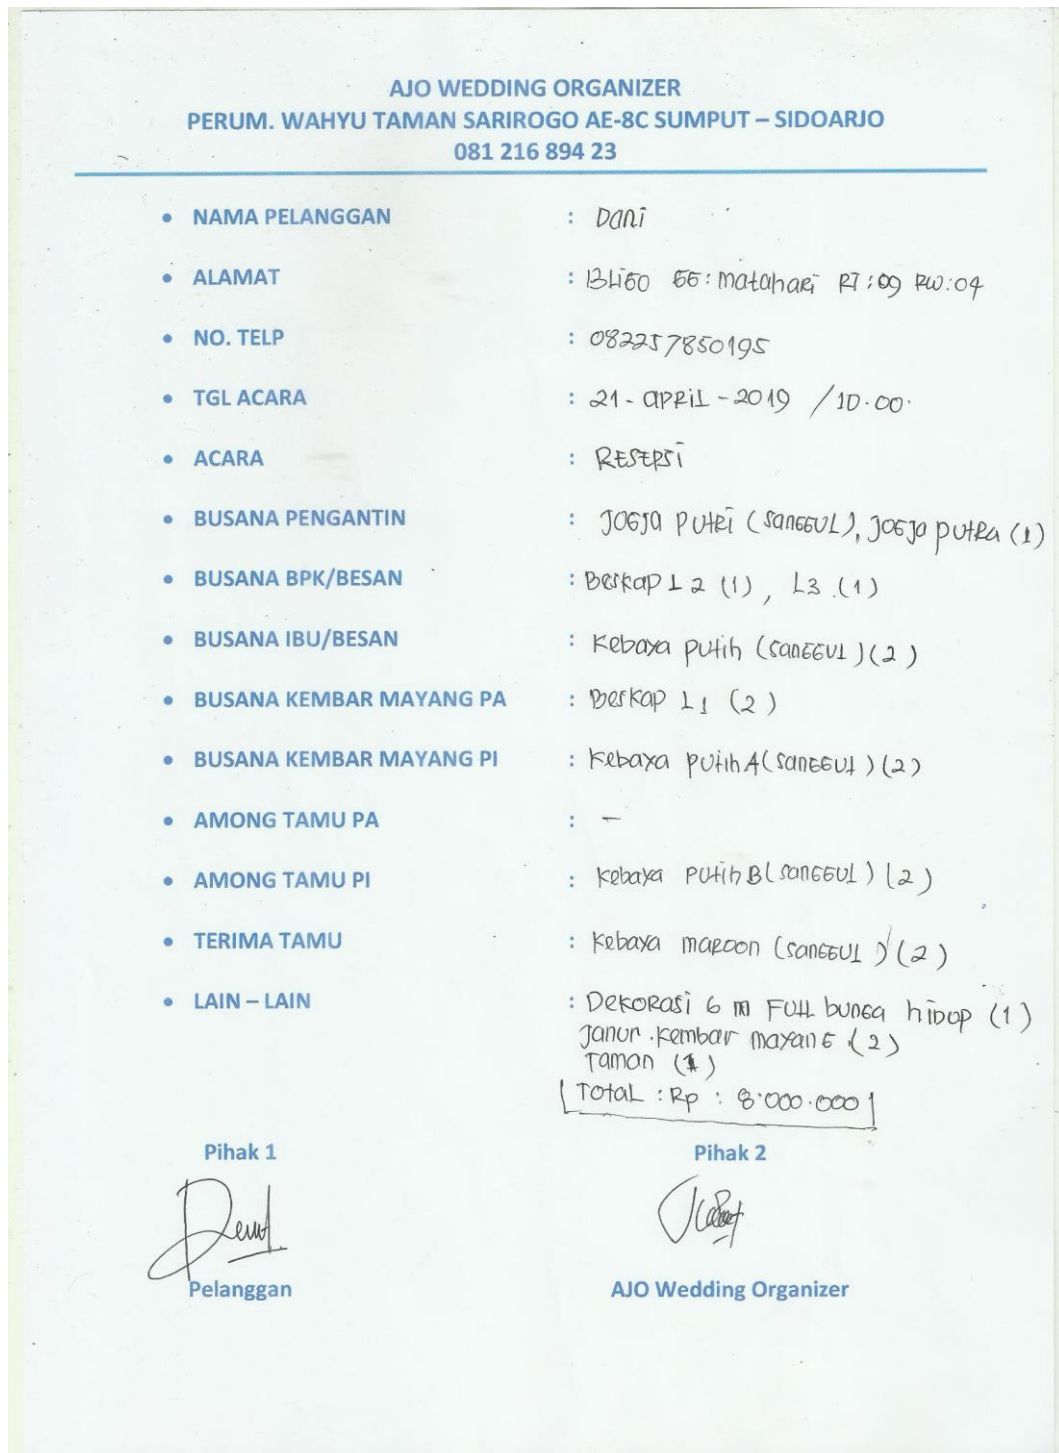 AJO WEDDING ORGANIZER
PERUM. WAHYU TAMAN SARIROGO AE-8C SUMPUT – SIDOARJO
081 216 894 23
• NAMA PELANGGAN : Dani
• ALAMAT : BLIGO GG: Matahari RT:09 RW:04
• NO. TELP : 082257850195
• TGL ACARA : 21 - APRIL - 2019 / 10.00.
• ACARA : RESEPSI
• BUSANA PENGANTIN : JOGJA PUTRI (SANGGUL), JOGJA PUTRA (1)
• BUSANA BPK/BESAN : Beskap L2 (1), L3 (1)
• BUSANA IBU/BESAN : Kebaya putih (sanggul) (2)
• BUSANA KEMBAR MAYANG PA : Beskap L1 (2)
• BUSANA KEMBAR MAYANG PI : Kebaya putih A (sanggul) (2)
• AMONG TAMU PA : -
• AMONG TAMU PI : Kebaya PUTIH B (sanggul) (2)
• TERIMA TAMU : Kebaya maroon (sanggul) (2)
• LAIN – LAIN : DEKORASI 6 m FULL bunga hidup (1)
Janur .kembar mayang (2)
Taman (1)
TOTAL : Rp : 8.000.000
Pihak 1 Pihak 2
Pelanggan AJO Wedding Organizer